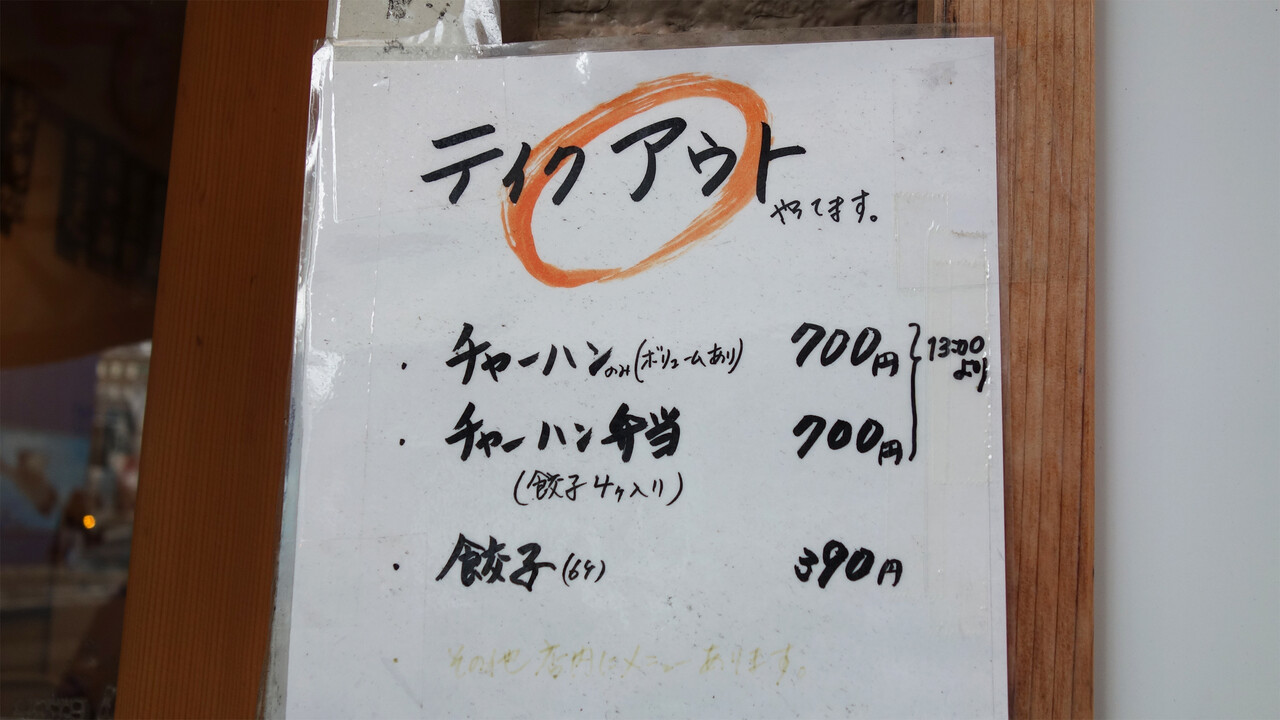 テイクアウト
やってます。
・チャーハンのみ(ボリュームあり) 700円
13:00
より
・チャーハン弁当 700円
(餃子4ヶ入り)
・餃子(6ヶ) 390円
・その他店内にメニューあります。